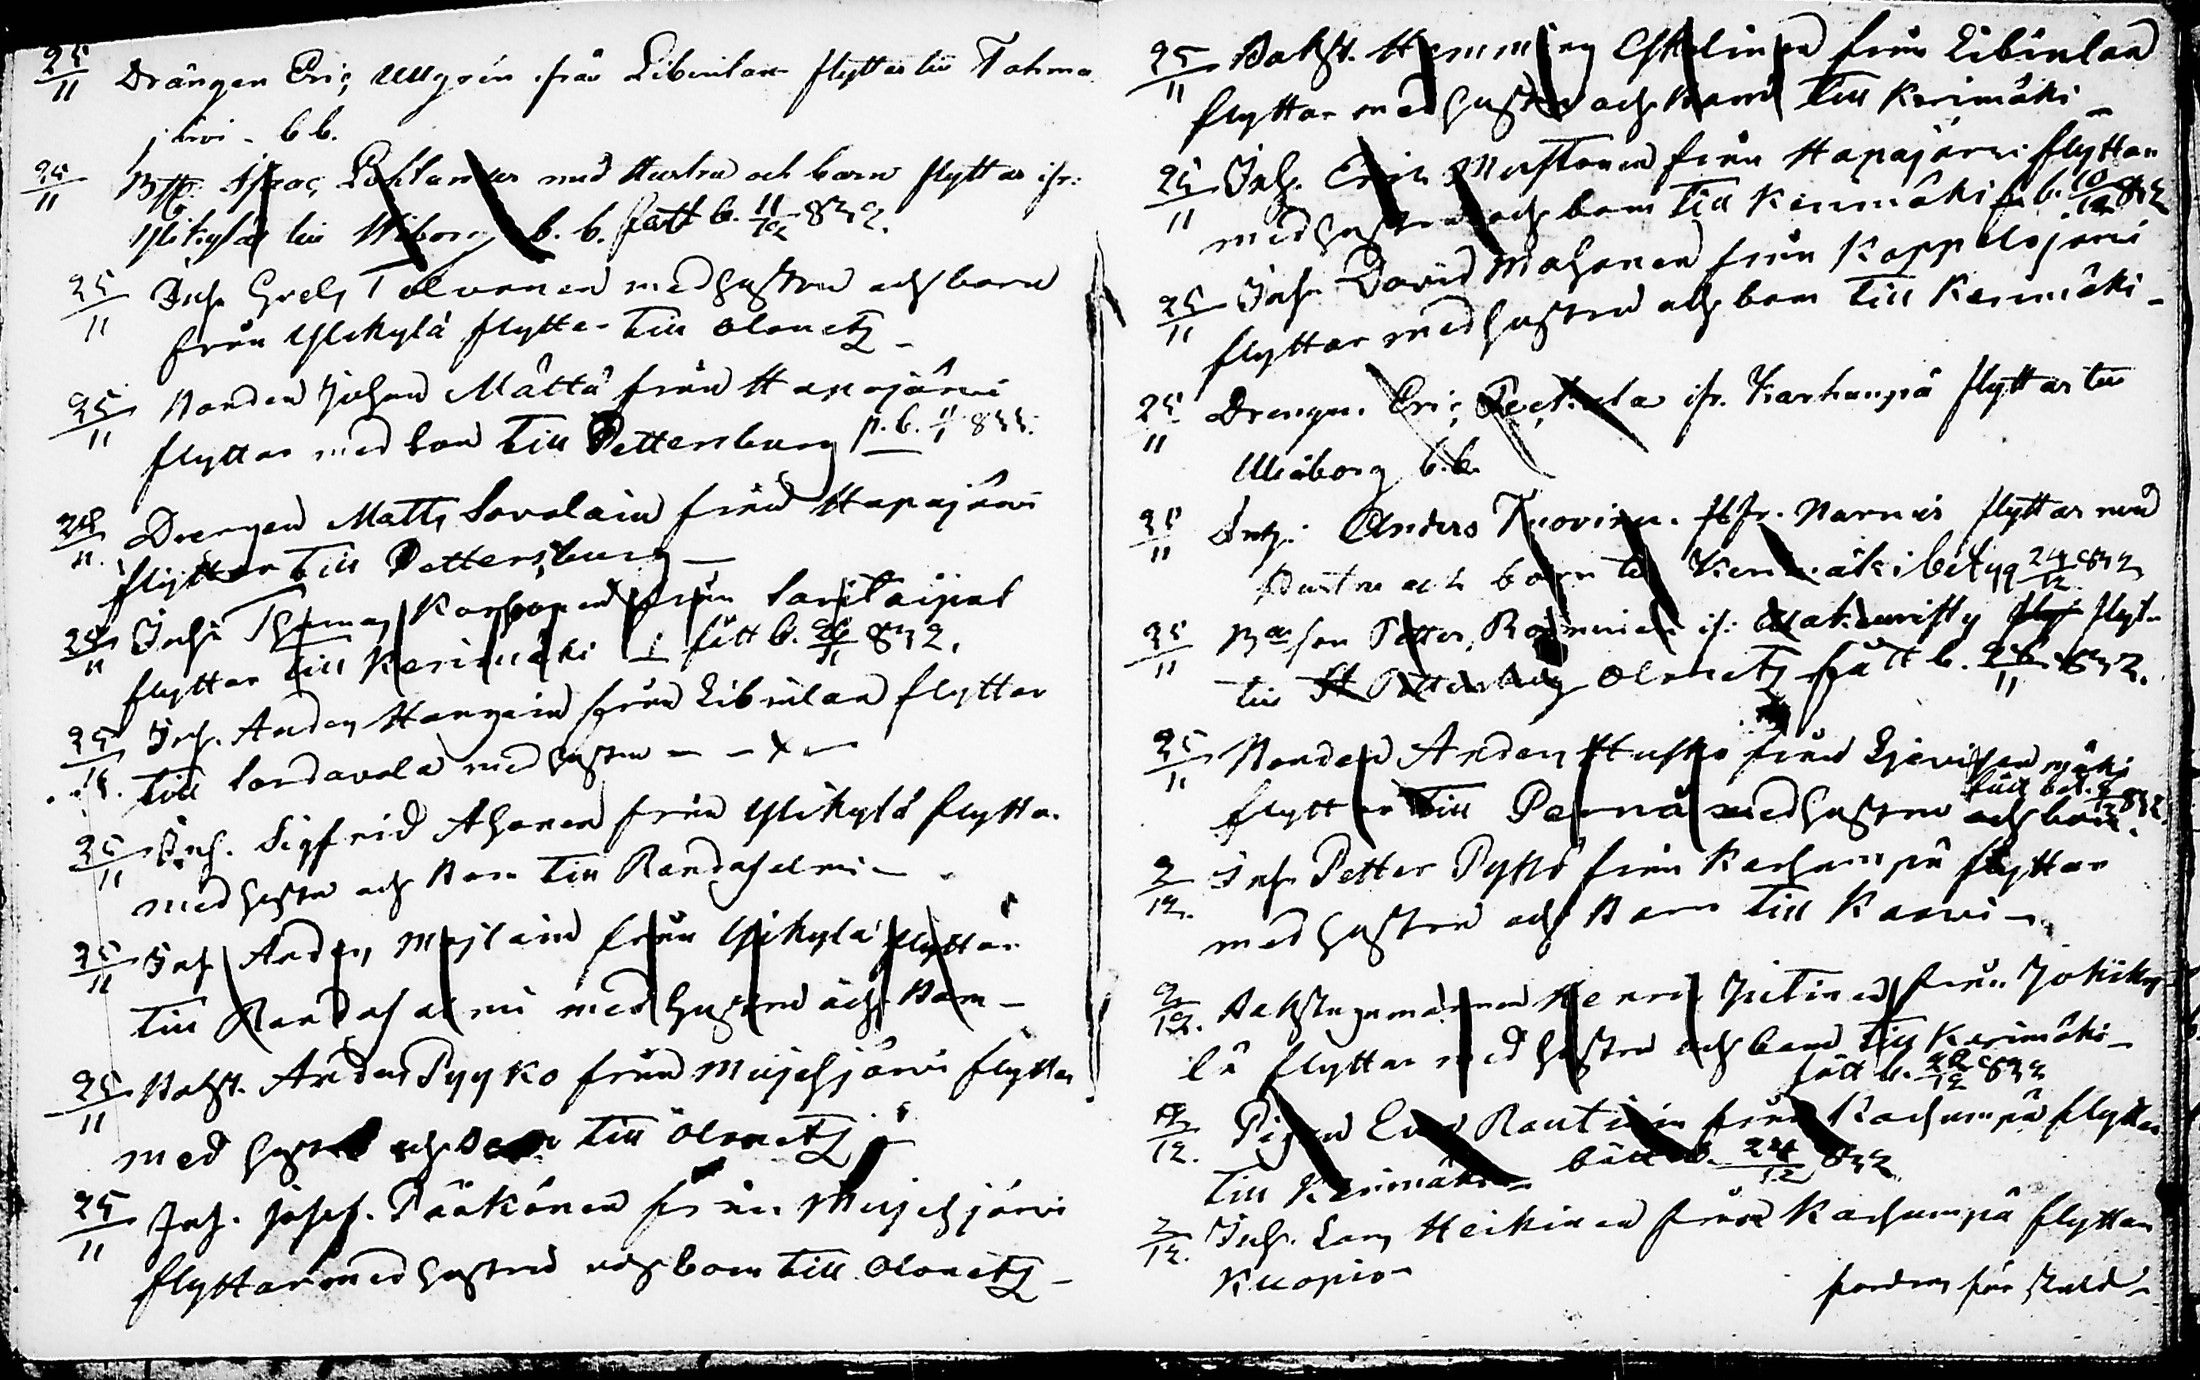 25/11 Drängen Eric Ullgrén från Libenlan flyttar till Tohma
järvi - b b.
25/11 Isaac Pohlander med Hustru och barn flyttar ifr:
Ylikylä till Wiborg b. b. fått b. 11/12 832.
25/11 Inh. Grels Tolvanen med hustru och barn
från Ylikylä flyttar till Olonetz -
25/11 Bonden Johan Mättä från Hapajärvi
flyttar med barn till Pettersburg p. b. 11/1 833.
25/11 Drengen Matts Savolain från Hapajärvi
flyttar till Pettersburg -
25/11 Inh. Thomas Karhonen från Savitaipal
flyttar till Kerimäki fått b. 26/11 832.
25/11 Inh. Anders Hangain från Libenlan flyttar
till Sordavala med hustru - - x -
25/11 Inh. Sigfrid Ahonen från Ylikylä flyttar
med hustru och Barn till Randasalmi -
25/11 Inh. Anders från Ylikylä flyttar
till Randasalmi med hustru och Barn -
25/11 Bakst. Anders Pyyko från Mujehjärvi flyttar
med hustru och barn till Olonetz -
25/11 Inh. Josef Pääkönen från Mujehjärvi
flyttar med hustru och barn till Olonetz -
25/11 Bakst. Hemming Eskelinen från Libenlan
flyttar med hustru och Barn till Kerimäki -
25/11 Inh. Eric Mustonen från Hapajärvi flyttar
med hustru och barn till Kerimäki f. b. 10/12 832
25/11 Inh. David Mahonen från Koppelojärvi
flyttar med hustru och barn till Kerimäki -
25/11 Drengen Eric ifr. Karhunpä flyttar till
Uleåborg b. b.
25/11 Inh: Anders Tuovinen ifr. Narmis flyttar med
Hustru och barn till Kerimäki betyg 24/12 832
25/11 Petter flyt-
till St Pettersburg Olonetz fått b. 26/11 832.
25/11 Bonden Anders Husko från
flyttar till Pernå med hustru och barn. fått bet. 832
2/12. Inh. Petter Pykkö från Karhunpä flyttar
med hustru och Barn till Kaavi -
2/12. Bakstugumannen Henric från Jokiky
lä flyttar med hustru och barn till Kerimäki -
fått b. 22/12 832
2/12. Pigan Eva Rautiain från Karhunpä flyttar
till Kerimäki - fått b. 24/12 832
2/12. Inh. Lars Heikinen från Karhunpä flyttar
Kuopio -
fordras för skuld -